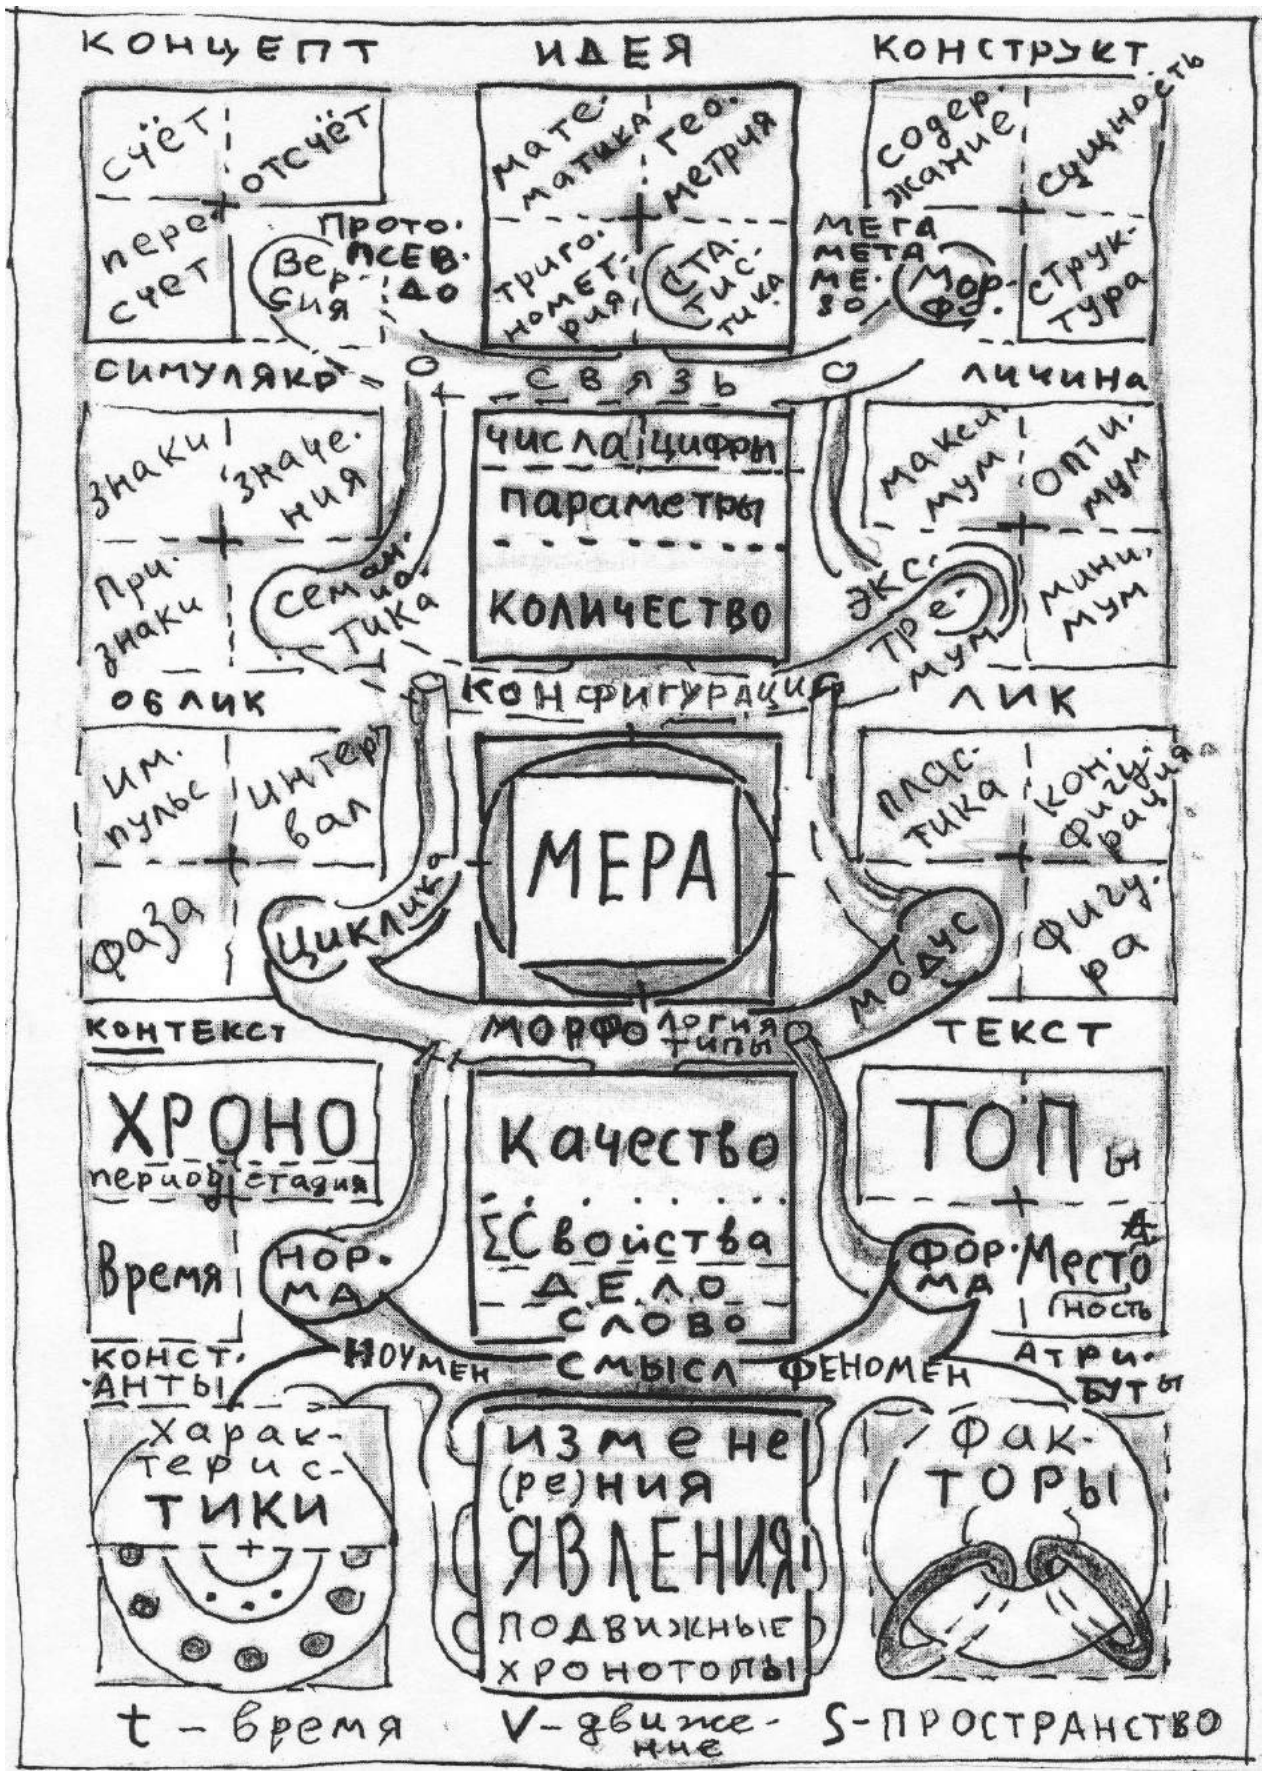 КОНЦЕПТ
ИДЕЯ
КОНСТРУКТ
счёт
отсчёт
пере
счет
Вер-
сия
Прото.
ПСЕВ.
ДО
мате.
матика
гео.
метрия
триго.
номет.
рия
СТА-
тис-
тика
содер.
жание
сущность
МЕГА
МЕТА
МЕ.
ЗО
Мор-
фо.
струк-
тура
СИМУЛЯКР
СВЯЗЬ
ЛИЧИНА
знаки
значе.
ния
При.
знаки
Семан.
тика
числа цифры
параметры
КОЛИЧЕСТВО
макси.
мум
опти.
мум
ЭКС-
ТРЕ-
МУМ
мини.
мум
ОБЛИК
КОНФИГУРАЦИЯ
ЛИК
им.
пульс
интер
вал
фаза
ЦИКЛИКА
МЕРА
плас-
тика
кон.
фигу.
рация
МОДУС
фигу.
ра
КОНТЕКСТ
МОРФО
ЛОГИЯ
ТИПЫ
ТЕКСТ
ХРОНО
период стадия
Время
НОР.
МА
Качество
ΣСвойства
Д.Е.Л.О
СЛОВО
ТОП ы
ФОР.
МА
Место
А
ность
КОНСТ.
АНТЫ
НОУМЕН
СМЫСЛ
ФЕНОМЕН
АТРИ.
БУТ ы
Харак-
терис-
ТИКИ
изме не
(ре)ния
ЯВЛЕНИЯ
ПОДВИЖНЫЕ
ХРОНОТОПЫ
Фак-
ТОРЫ
t - время
V-движе-
ние
S-ПРОСТРАНСТВО